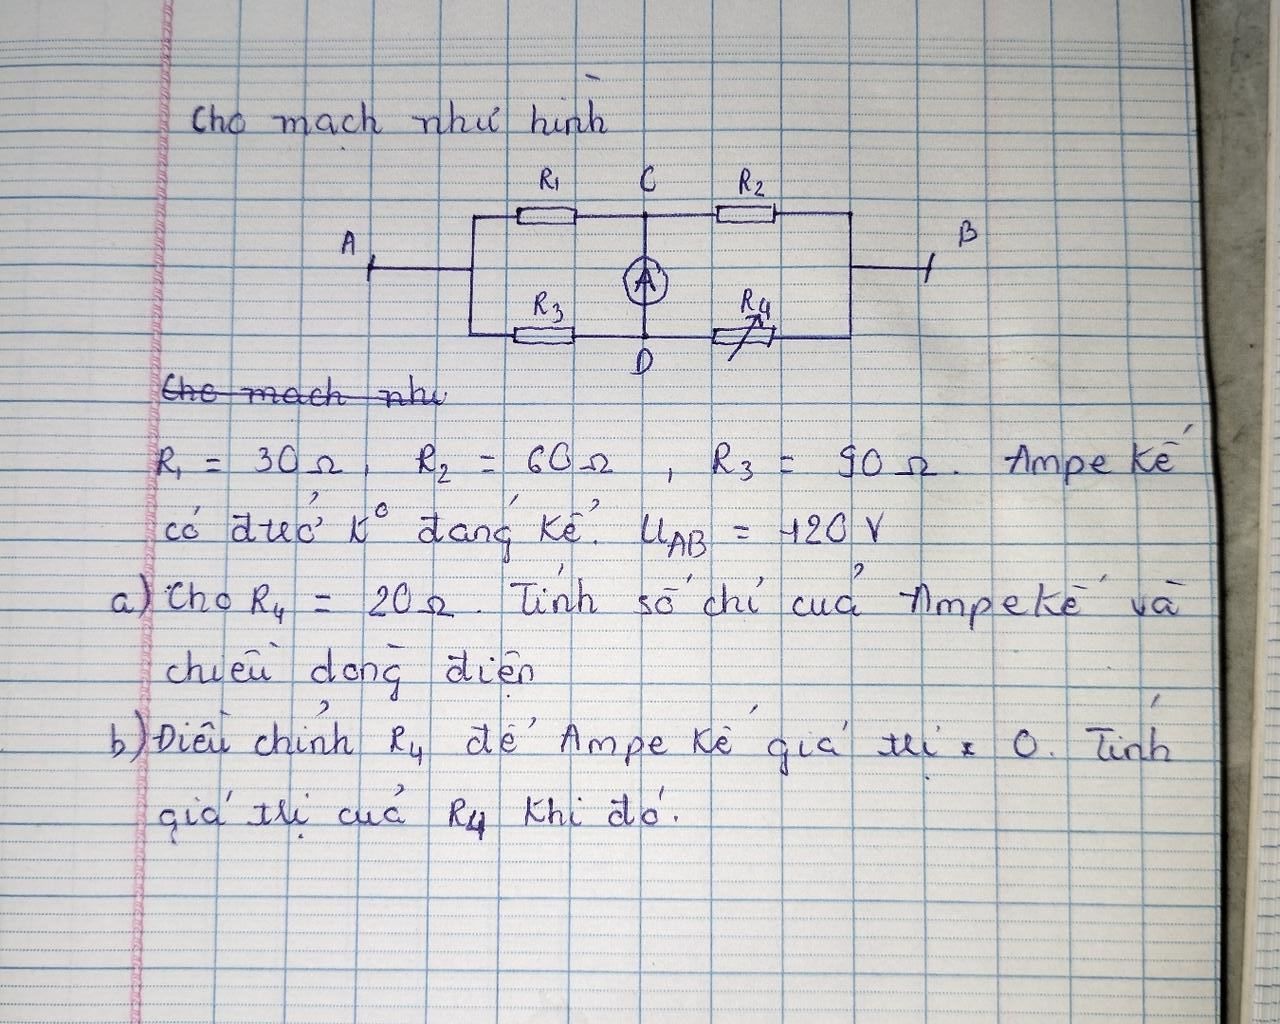 Cho mạch như hình
R1 C R2
A B
A
R3 R4
D
Cho mach nhu
R1 = 30Ω, R2 = 60Ω, R3 = 90Ω. Ampe kế
có được k° đáng kể. UAB = 120V
a) Cho R4 = 20Ω. Tính số chỉ của Ampe kế và
chiều dòng điện
b) Điều chỉnh R4 để Ampe kế giá trị = 0. Tính
giá trị của R4 khi đó.